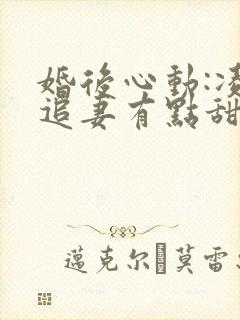 婚後心動:凌
追妻有點甜
邁克尔·莫雷